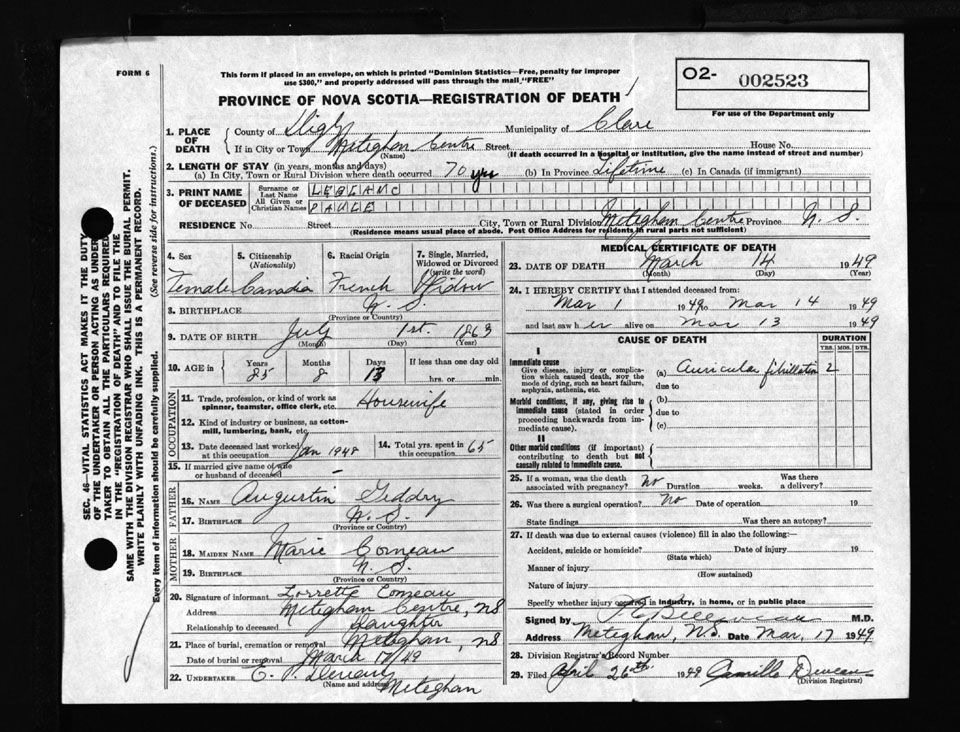 FORM 6
This form if placed in an envelope, on which is printed "Dominion Statistics—Free, penalty for improper
use $300," and properly addressed will pass through the mail "FREE"
PROVINCE OF NOVA SCOTIA—REGISTRATION OF DEATH
O2- 002523
For use of the Department only
1. PLACE OF DEATH
County of Digby Municipality of Clare
If in City or Town Meteghan Centre Street House No.
(Name) (If death occurred in a hospital or institution, give the name instead of street and number)
2. LENGTH OF STAY (in years, months and days)
(a) In City, Town or Rural Division where death occurred 70 yrs (b) In Province Lifetime (c) In Canada (if immigrant)
3. PRINT NAME OF DECEASED
Surname or Last Name LEBLANC
All Given or Christian Names
RESIDENCE No. Street City, Town or Rural Division Meteghan Centre Province N. S.
(Residence means usual place of abode. Post Office Address for residents in rural parts not sufficient)
4. Sex
Female
5. Citizenship (Nationality)
Canadia
6. Racial Origin
French
7. Single, Married, Widowed or Divorced (write the word)
Widow
8. BIRTHPLACE N. S.
(Province or Country)
9. DATE OF BIRTH July 1st. 1863
(Month) (Day) (Year)
10. AGE in Years Months Days If less than one day old
85 8 13 hrs. or min.
OCCUPATION
11. Trade, profession, or kind of work as spinner, teamster, office clerk, etc. Housewife
12. Kind of industry or business, as cotton-mill, lumbering, bank, etc.
13. Date deceased last worked at this occupation Jan 1948
14. Total yrs. spent in this occupation 65
15. If married give name of wife or husband of deceased –
FATHER
16. NAME Augustin Geddry
17. BIRTHPLACE N. S.
(Province or Country)
MOTHER
18. MAIDEN NAME Marie Comeau
19. BIRTHPLACE N. S.
(Province or Country)
20. Signature of informant Lorrette Comeau
Address Meteghan Centre, NS
Relationship to deceased daughter
21. Place of burial, cremation or removal Meteghan, NS
Date of burial or removal March 17/49
22. UNDERTAKER E. P.
(Name and address) Meteghan
MEDICAL CERTIFICATE OF DEATH
23. DATE OF DEATH March 14 1949
(Month) (Day) (Year)
24. I HEREBY CERTIFY that I attended deceased from:
Mar 1 1949 to Mar 14 1949
and last saw her alive on Mar 13 1949
CAUSE OF DEATH
DURATION
YRS. MOS. DYS.
I
Immediate cause
Give disease, injury or complication which caused death, NOT the mode of dying, such as heart failure, asphyxia, asthenia, etc.
(a) Auricular fibrillation 2
due to
Morbid conditions, if any, giving rise to immediate cause (stated in order proceeding backwards from immediate cause).
(b)
due to
(c)
II
Other morbid conditions (if important) contributing to death but not causally related to immediate cause.
25. If a woman, was the death associated with pregnancy? No Duration weeks. Was there a delivery?
26. Was there a surgical operation? No Date of operation 19
State findings Was there an autopsy?
27. If death was due to external causes (violence) fill in also the following:—
Accident, suicide or homicide? Date of injury 19
(State which)
Manner of injury
(How sustained)
Nature of injury
Specify whether injury occurred in industry, in home, or in public place
Signed by M.D.
Address Meteghan, N.S. Date Mar. 17 1949
28. Division Registrar's Record Number
29. Filed April 26th. 1949 Camille
(Division Registrar)
SEC. 46—VITAL STATISTICS ACT MAKES IT THE DUTY
OF THE UNDERTAKER OR PERSON ACTING AS UNDER-
TAKER TO OBTAIN ALL THE PARTICULARS REQUIRED
IN THE "REGISTRATION OF DEATH" AND TO FILE THE
SAME WITH THE DIVISION REGISTRAR WHO SHALL ISSUE THE BURIAL PERMIT.
WRITE PLAINLY WITH UNFADING INK. THIS IS A PERMANENT RECORD.
Every item of information should be carefully supplied. (See reverse side for instructions.)